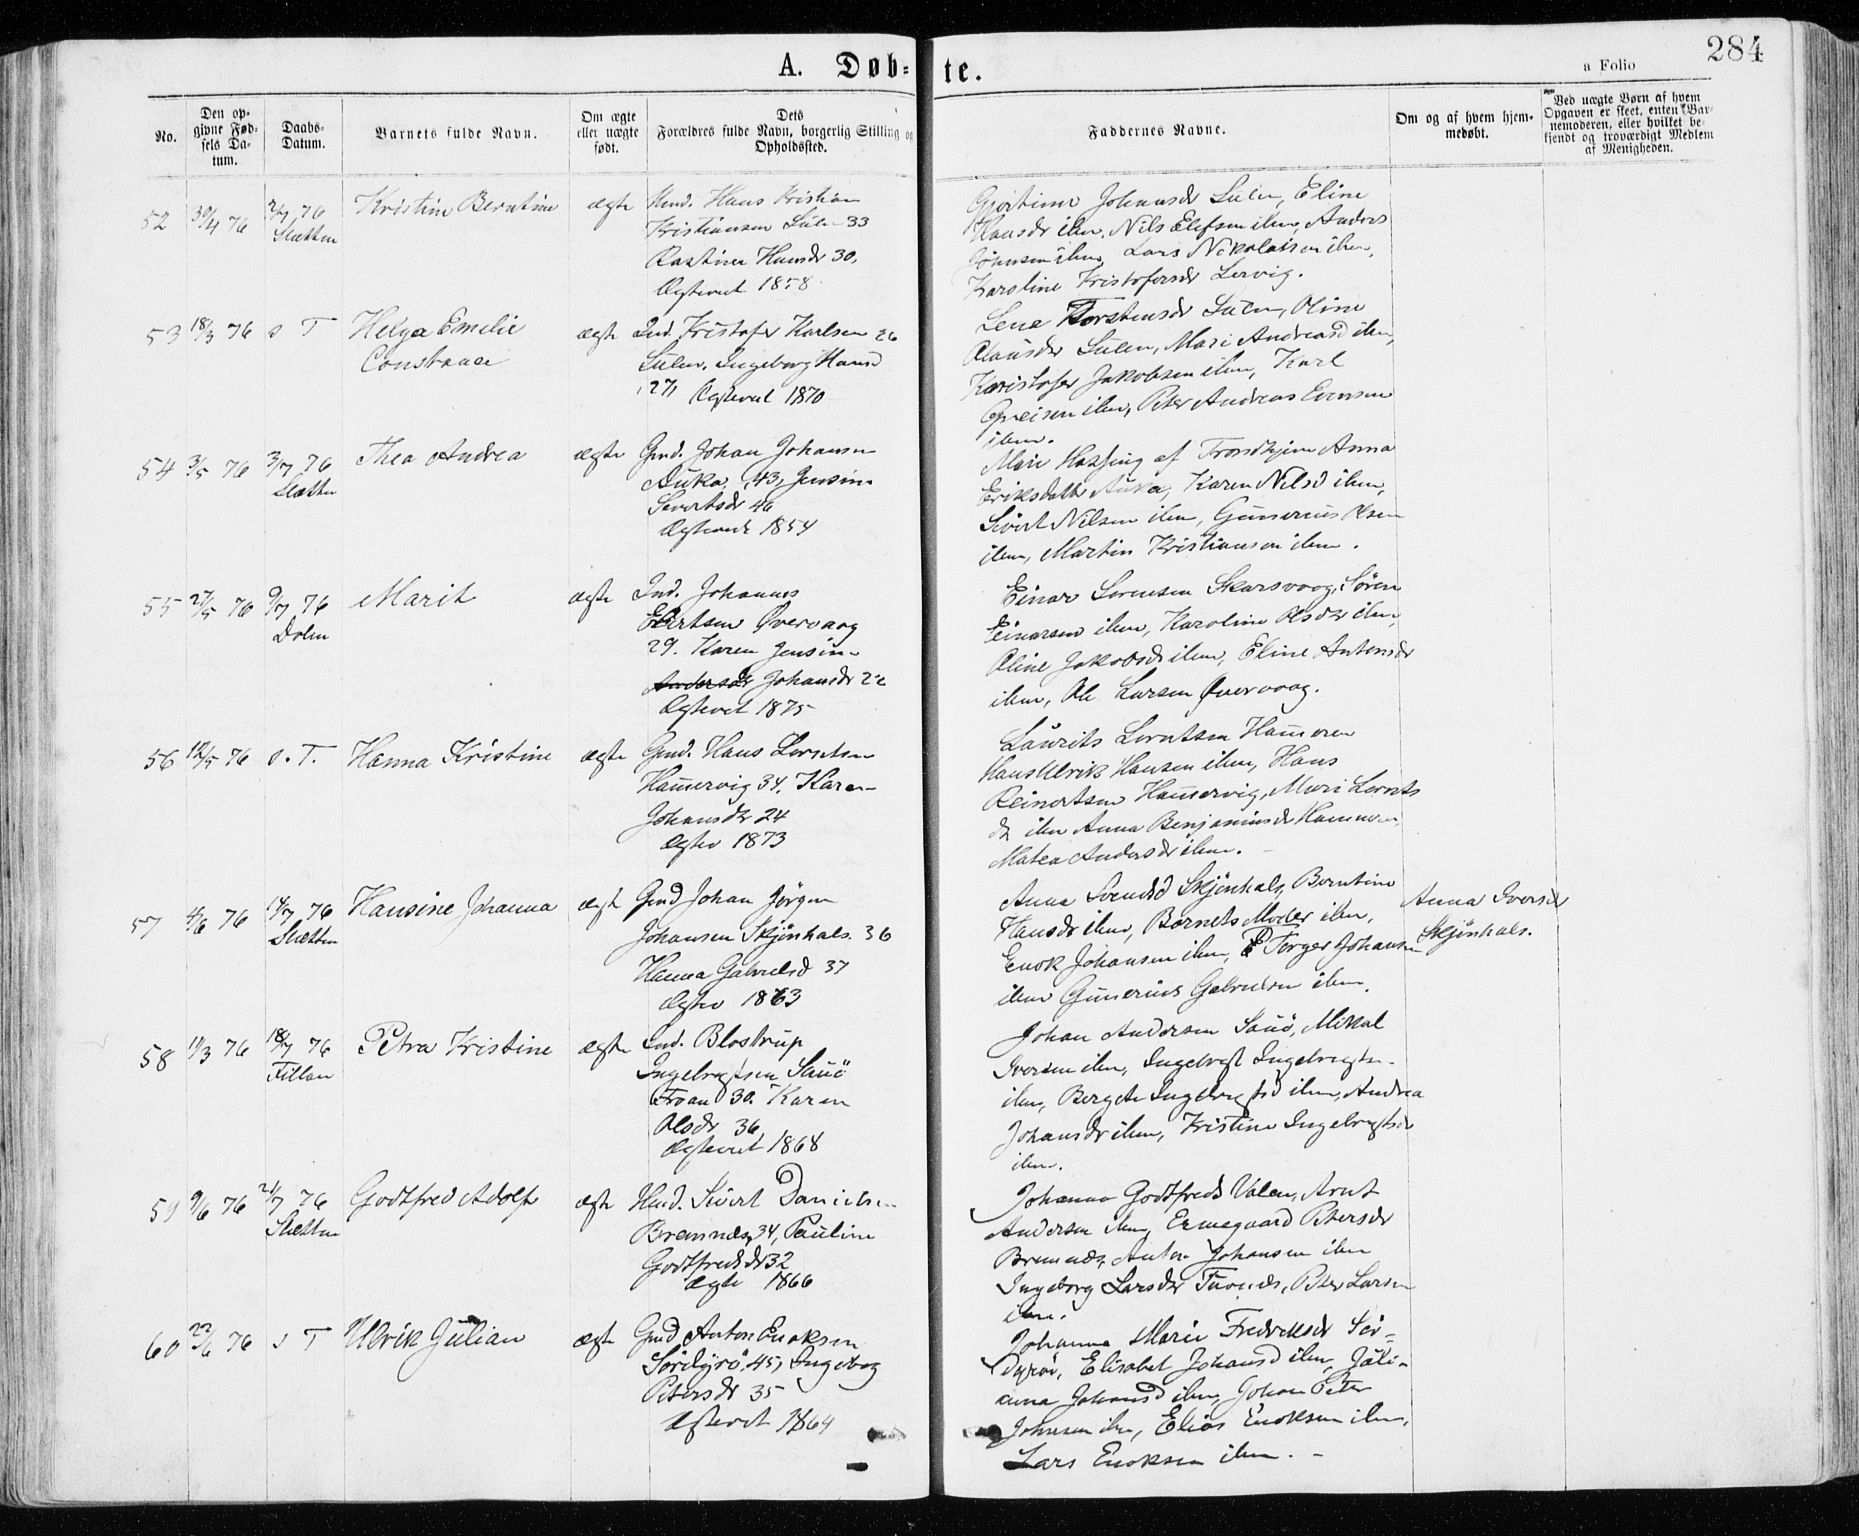 284
A. Døb=te.
a Folio
No.
Den op-
givne Fød-
sels Da-
tum.
Daabs-
Datum.
Barnets fulde Navn.
Om ægte
eller uægte
født.
Dets
Forældres fulde Navn, borgerlig Stilling og
Opholdssted.
Faddernes Navne.
Om og af hvem hjem-
medøbt.
Ved uægte Børn af hvem
Opgaven er skeet, enten Bar-
nemoderen, eller hvilket be-
kjendt og troværdigt Medlem
af Menigheden.
52 30/4 76 2/7 76 Kristine Berntine ægte Hmd. Hans Kristian
Slætten Kristiansen Sulen 33
Hansdr 30,
Ægteviet 1858
Johansdr Sulen, Eline
Hansdr ibm, Nils Elefsen ibm, Anders
Johnsen ibm, Lars Nikolaisen ibm,
Karoline Kristofersdr Lervig.
53 18/3 76 s T Helga Emelie ægte Ind. Kristofer Karlsen 26
Constance Sulen, Ingeborg Hansd
27, Ægteviet 1870
Lene Torstensdr Sulen, Oline
Olausdr Sulen, Mari Andreasd ibm,
Kristofer Jakobsen ibm, Karl
ibm, Peter Andreas Evensen
ibm.
54 3/5 76 3/7 76 Thea Andrea ægte Gmd. Johan Johansen
Slætten Auka, 43, Jensine
Sivertsdr 46
Ægteviet 1854
Mari af Trondhjem Anna
Eriksdatter Auka, Karen Nilsd ibm,
Sivert Nilsen ibm, Gunerius Olsen
ibm, Martin Kristiansen ibm.
55 27/5 76 9/7 76 Marit ægte Ind. Johannes
Dolm Evertsen Øvervaag
29. Karen Jensine
Andersdr Johansdr 22
Ægteviet 1875
Einar Sorensen Skarsvaag, Sören
Einarsen ibm, Karoline Olsdr ibm,
Oline Jakobsdr ibm, Eline Antonsdr
ibm, Ole Larsen Øvervaag.
56 12/5 76 s. T. Hanna Kristine ægte Gmd. Hans Lorntsen
Hamervig 34, Karen
Johansdr 24
Ægtev 1873
Laurits Lorntsen Hameren
Hans Ulrik Hansen ibm, Hans
Reinertsen Hamervig, Mari Lornts
dr ibm Anna Benjaminsdr Hammeren,
Matea Andersdr ibm.
57 4/6 76 14/7 76 Hansine Johanna ægt Gmd Johan Jørgen
Slætten Johansen Skjönhals 36
Hanna Gabrielsd 37
Ægtev 1863
Anna Svendsd Skjönhals, Berntine
Hansdr ibm, Barnets Moder ibm,
Enok Johansen ibm, Torger Johansen
ibm Gunerius Gabrielsen ibm.
Anna Iversdr
Skjönhals.
58 11/3 76 18/7 76 Petra Kristine ægte Ind. Blostrup
Fillan Ingebrigtsen Sauö
Froan 30. Karen
Olsdr 36
Ægteviet 1868
Johan Andersen Sauö, Mikal
Iversen ibm, Ingebrigt Ingebrigtsen
ibm, Bergete Ingebrigtsd ibm, Andrea
Johansdr ibm, Kristine Ingebrigtsdr
ibm.
59 9/6 76 21/7 76 Godtfred Adolf ægte Hmd. Sivert Danielsen
Slætten Bremnes, 34, Pauline
Godtfredsdr 32
ægtv 1866
Johanna Godtfreds Valen, Arnt
Andersen ibm, Ermegaard Petersdr
Bremnes, Anton Johansen ibm
Ingeborg Larsdr Tuvnes, Peter Larsen
ibm.
60 22/6 76 s T Ulrik Julian ægte Gmd Anton Enoksen
Sördyrö 45, Ingeborg
Petersdr 35
Ægteviet 1864
Johanna Marie Fredriksdr Sör-
dyröi, Elisabet Johansd ibm, Juli-
anna Johansd ibm, Johan Peter
Johnsen ibm, Elias Enoksen ibm,
Lars Enoksen ibm. -